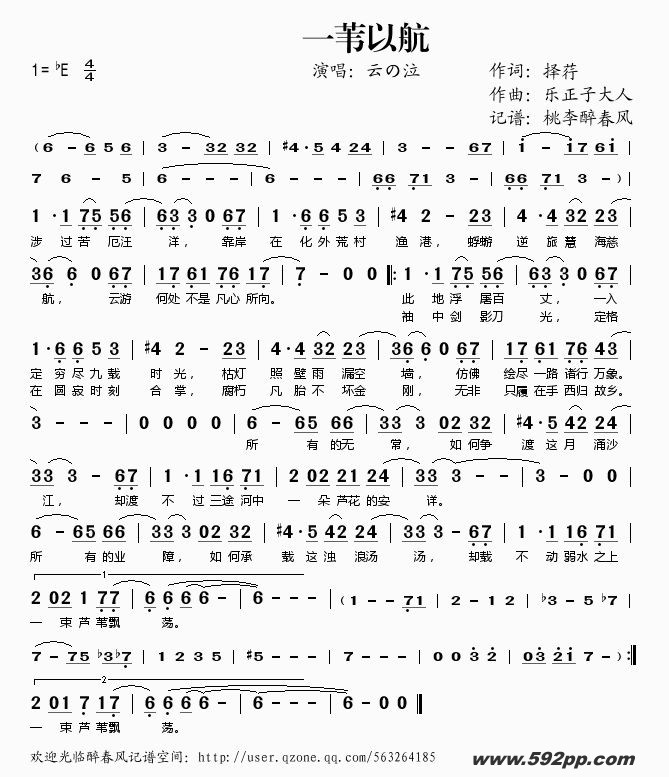 一苇以航
1=♭E 4/4 演唱：云の泣 作词：择荇
作曲：乐正子大人
记谱：桃李醉春风
(6 - 6 5 6 | 3 - 32 32 | #4·5 4 24 | 3 - - 67 | i - i7 6i |
7 6 - 5 | 6 - - - | 6 - - - | 66 71 3 - | 66 71 3 - ) |
1·1 75 56 | 63 3 0 67 | 1·6 6 5 3 | #4 2 - 23 | 4·4 32 23 |
涉 过 苦 厄汪 洋， 靠岸 在 化 外 荒 村 渔 港， 蜉蝣 逆 旅 慧 海慈
36 6 0 67 | 17 61 76 17 | 7 - 0 0 ‖: 1·1 75 56 | 63 3 0 67 |
航， 云游 何处 不是 凡心 所向。 此 地 浮 屠百 丈， 一入
袖 中 剑 影刀 光， 定格
1·6 6 5 3 | #4 2 - 23 | 4·4 32 23 | 36 6 0 67 | 17 61 76 17 |
定 穷 尽 九 载 时 光， 枯灯 照 壁 雨 漏空 墙， 仿佛 绘尽 一路 诸行 万象。
在 圆 寂 时 刻 合 掌， 腐朽 凡 胎 不 坏金 刚， 无非 只履 在手 西归 故乡。
3 - - - | 0 0 0 0 | 6 - 65 66 | 33 3 02 32 | #4·5 42 24 |
所 有的 无 常， 如 何争 渡 这 月 涌沙
33 3 - 67 | 1·1 16 71 | 2 02 21 24 | 33 3 - - | 3 - 0 0 |
江， 却渡 不 过 三途 河中 一 朵 芦花 的安 详。
6 - 65 66 | 33 3 02 32 | #4·5 42 24 | 33 3 - 67 | 1·1 16 71 |
所 有的 业 障， 如 何承 载 这 浊 浪汤 汤， 却载 不 动 弱水 之上
1
2 02 1 77 | 6 6 6 6 - | 6 - - - | (1 - - 71 | 2 - 1 2 | ♭3 - 5 ♭7 |
一 束 芦 苇飘 荡。
7 - 75 ♭3♭7 | 1 2 3 5 | #5 - - - | 7 - - - | 0 0 3 2 | 03 2i 7 - ) :‖
2
2 01 7 17 | 6 6 6 6 - | 6 - - - | 6 - 0 0 ‖
一 束 芦 苇飘 荡。
欢迎光临醉春风记谱空间：http://user.qzone.qq.com/563264185
www.592pp.com